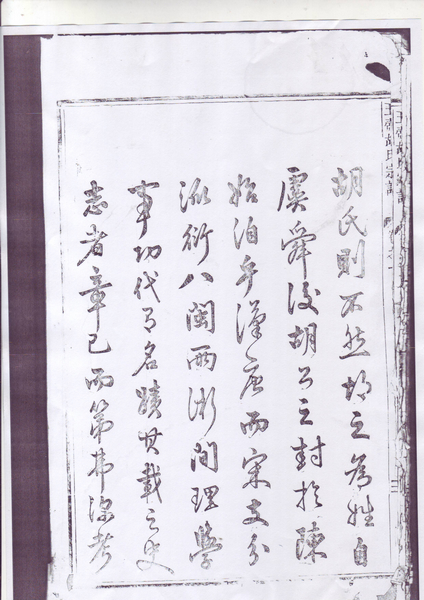 胡氏宗譜
胡氏則不然胡之為姓自
虞舜後胡公之封於陳
始洎乎漢唐而宋支分
派衍八閩兩浙間理學
事功代有名蹟具載之史
志者章已而第弗深考